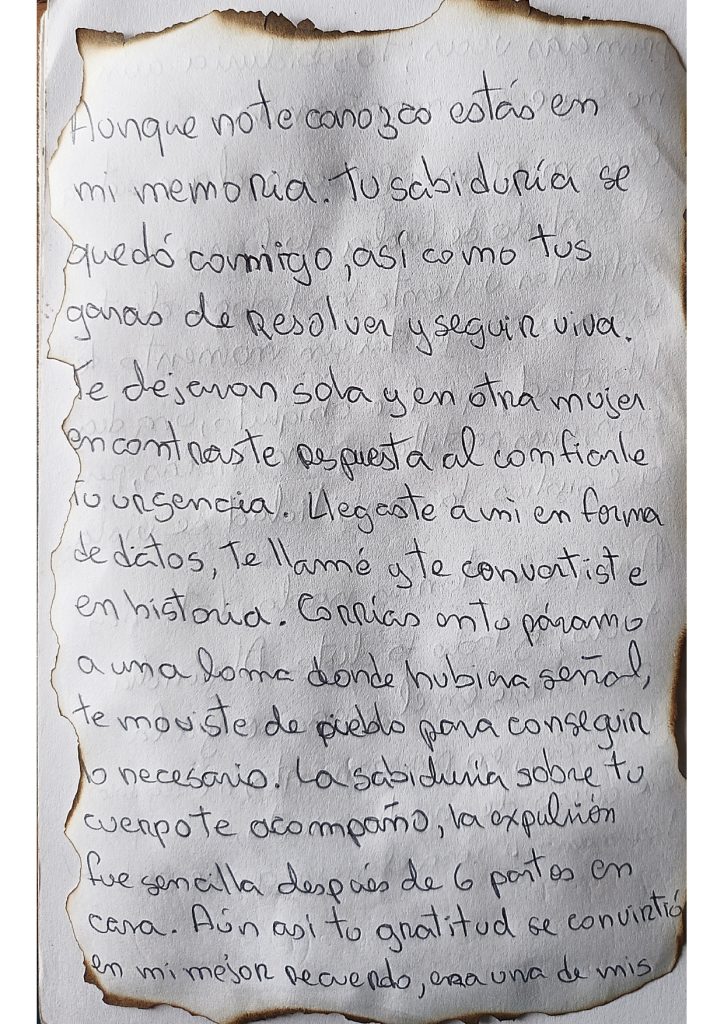 Aunque no te conozco estás en
mi memoria. Tu sabiduría se
quedó conmigo, así como tus
ganas de resolver y seguir viva.
Te dejaron sola y en otra mujer
encontraste respuesta al confiarle
tu urgencia. Llegaste a mi en forma
de datos, te llamé y te convertiste
en historia. Corrías en tu páramo
a una loma donde hubiera señal,
te moviste de pueblo para conseguir
lo necesario. La sabiduría sobre tu
cuerpo te acompaño, la expulsión
fue sencilla después de 6 partos en
casa. Aún asi tu gratitud se convirtió
en mi mejor recuerdo, era una de mis